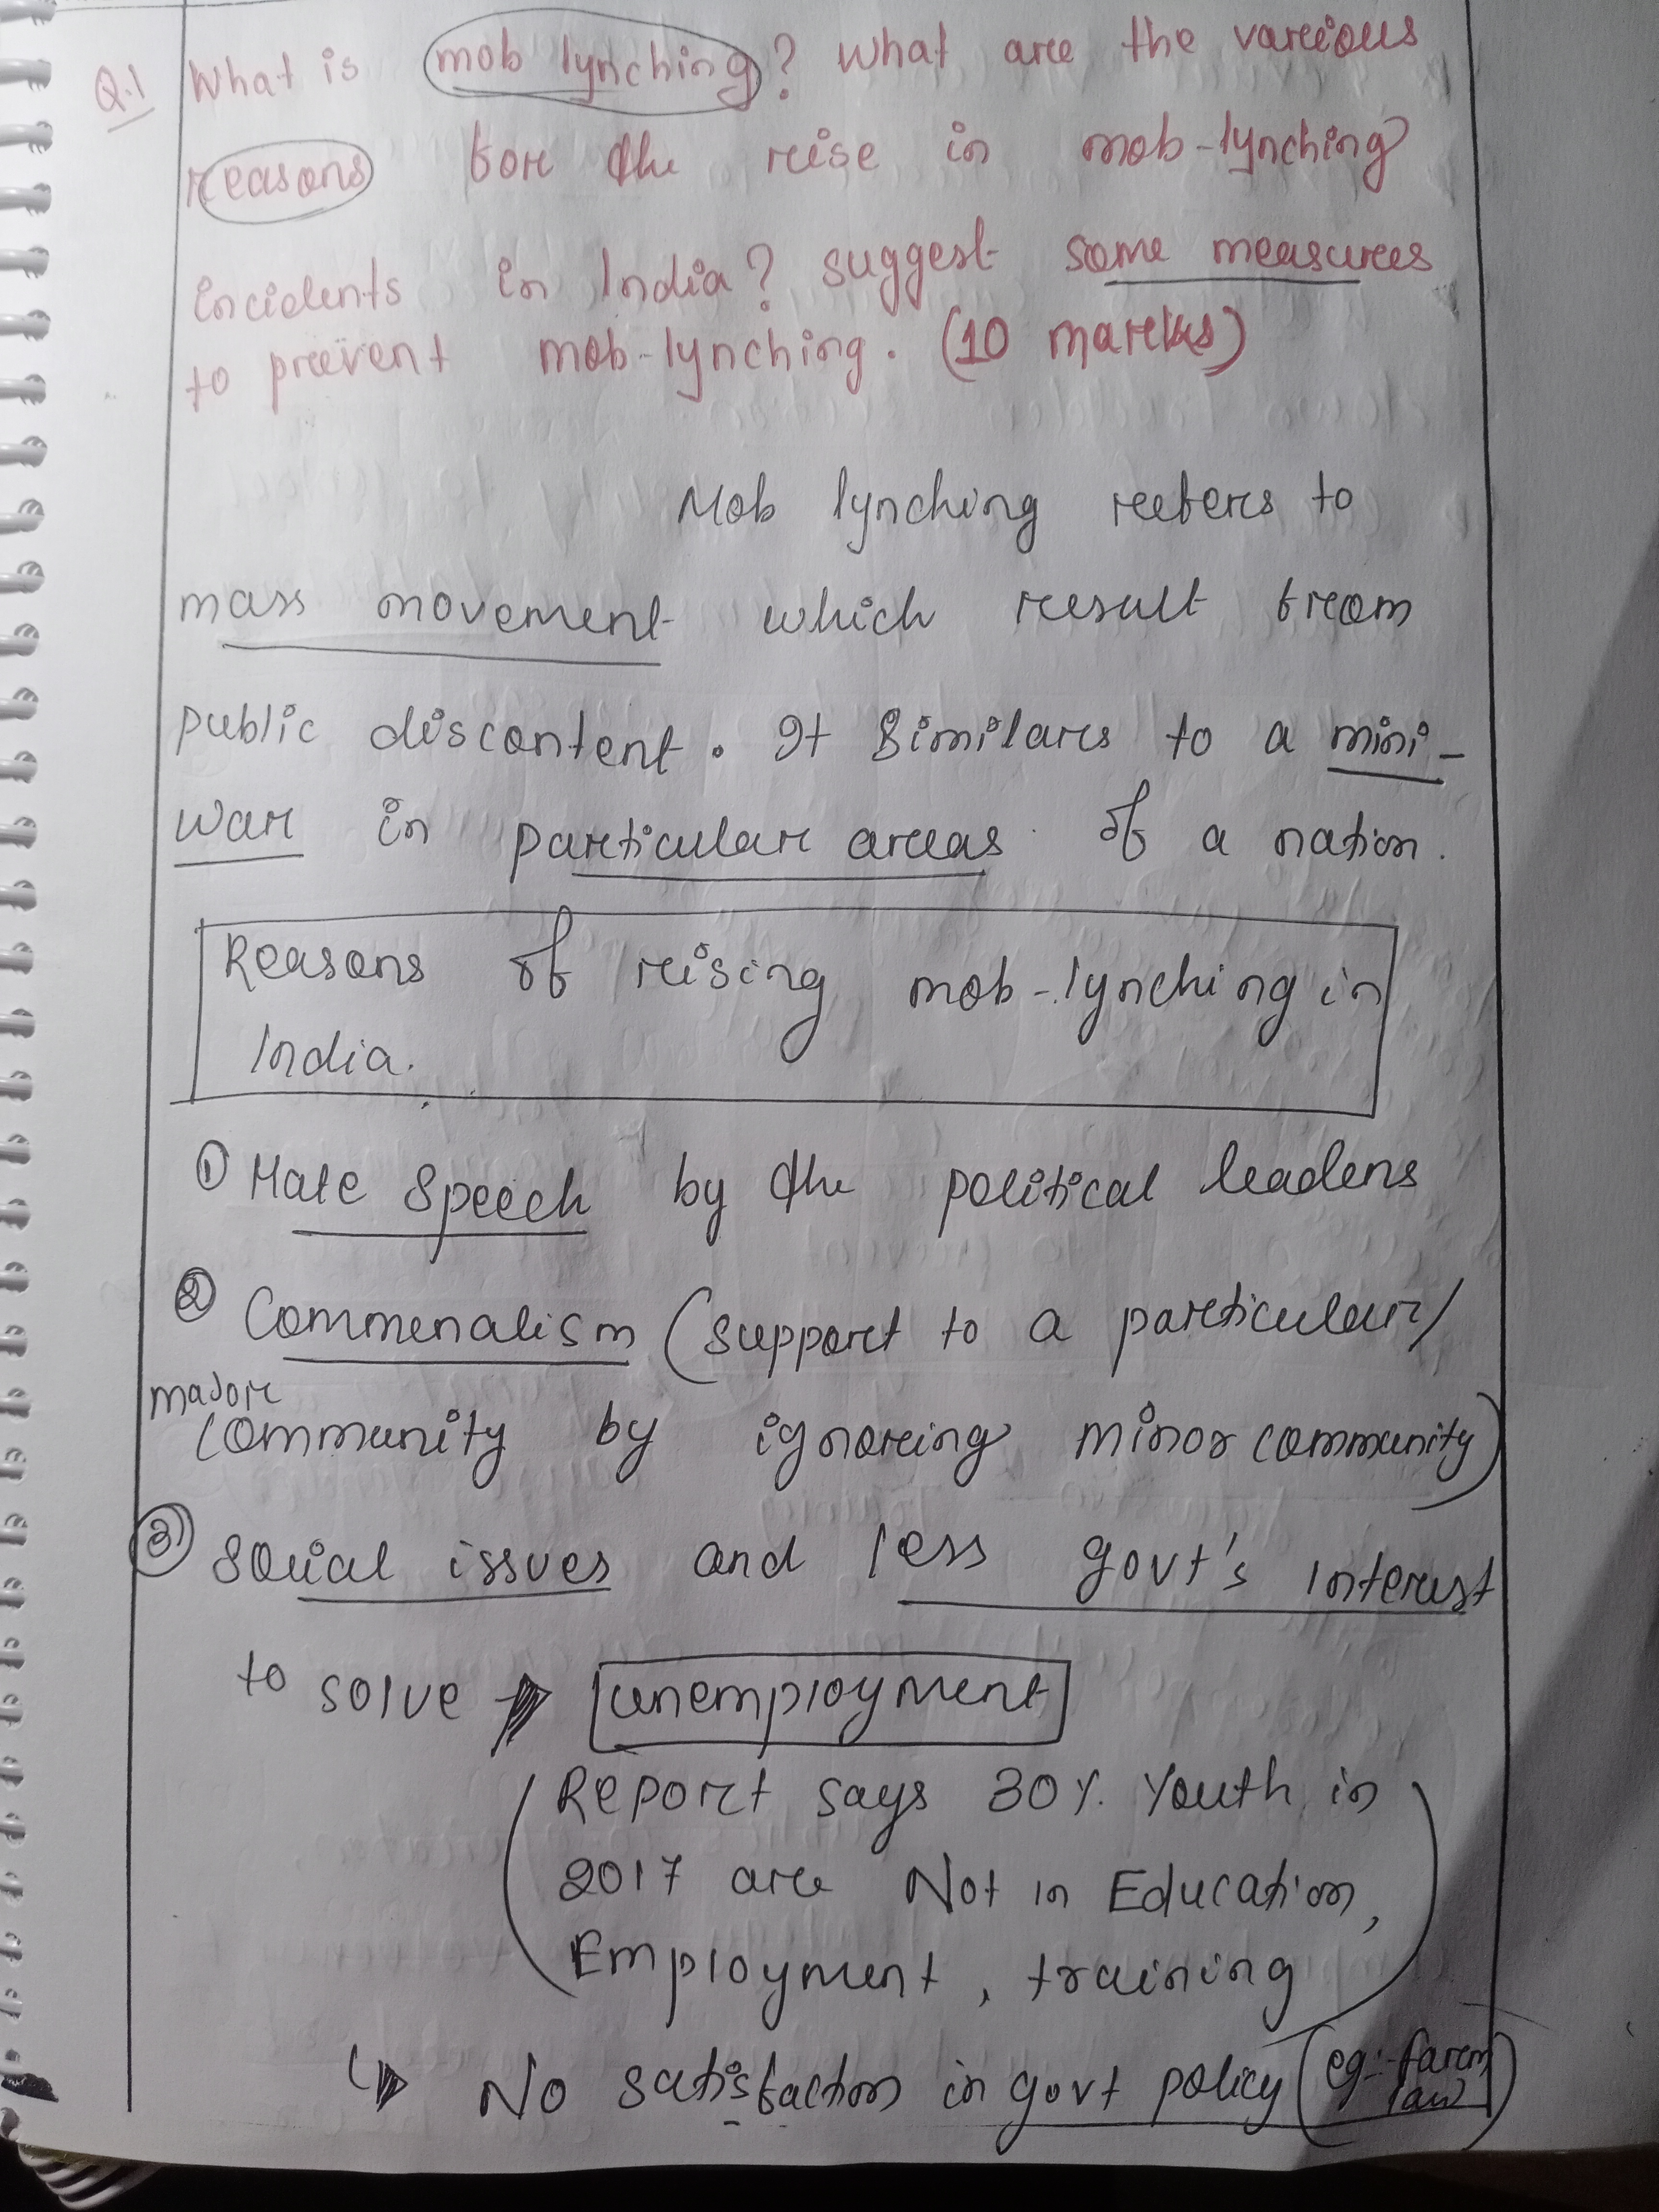 Q.1 What is mob lynching? What are the various
reasons for the rise in mob-lynching
incidents in India? suggest some measures
to prevent mob-lynching. (10 marks)
Mob lynching refers to
mass movement which result from
public discontent. It similars to a mini-
war in particular areas of a nation.
Reasons of rising mob-lynching in
India.
① Hate speech by the political leaders
② Commenalism (support to a particular/
major
community by ignoring minor community)
③ social issues and less govt's interest
to solve → unemployment
(Report says 30% Youth in
2017 are Not in Education,
Employment, training)
↳ No satisfaction in govt policy (eg:- farm
law)